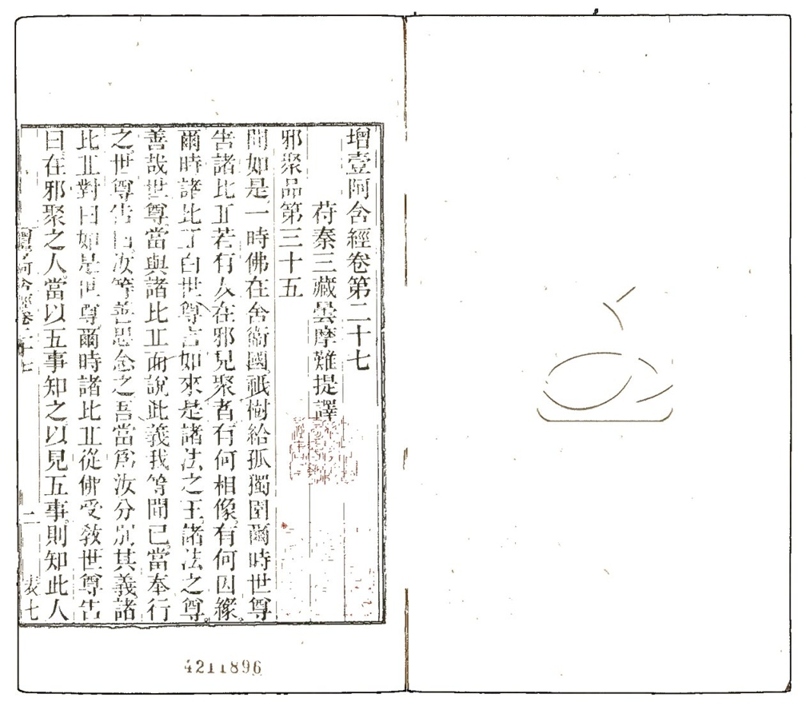 增壹阿含經卷第二十七
苻秦三藏曇摩難提譯
邪聚品第三十五
聞如是一時佛在舍衛國祇樹給孤獨園爾時世尊
告諸比丘若有人在邪見聚者有何相像有何因緣
爾時諸比丘白世尊言如來是諸法之王諸法之尊
善哉世尊當與諸比丘而說此義我等聞已當奉行
之世尊告曰汝等善思念之吾當爲汝分別其義諸
比丘對曰如是世尊爾時諸比丘從佛受教世尊告
曰在邪聚之人當以五事知之以見五事則知此人
增壹阿含經卷二十七
二
表七
4211896